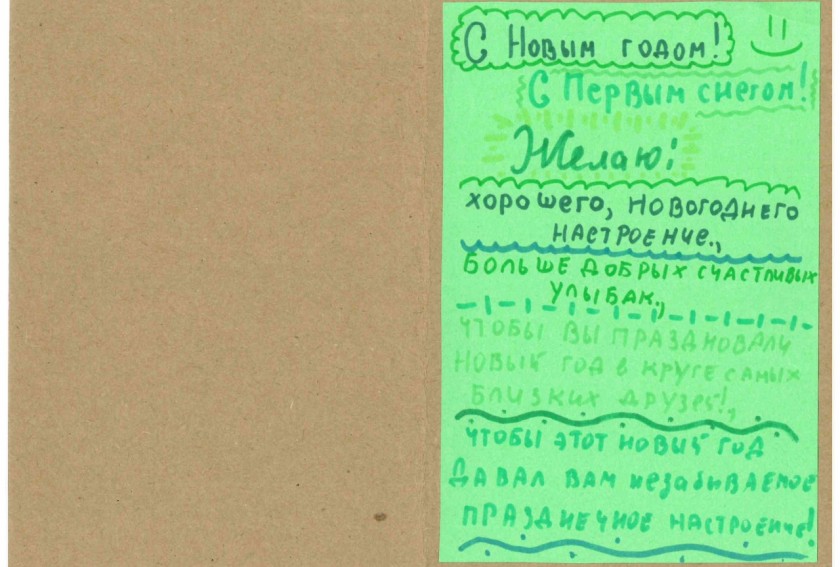 С Новым годом!
С Первым снегом!
Желаю:
хорошего, новогоднего
настроение.,
больше добрых счастливых
улыбак.,
чтобы вы праздновали
новый год в круге самых
близких друзей!,
чтобы этот новый год
давал вам незабываемое
праздиечное настроение!